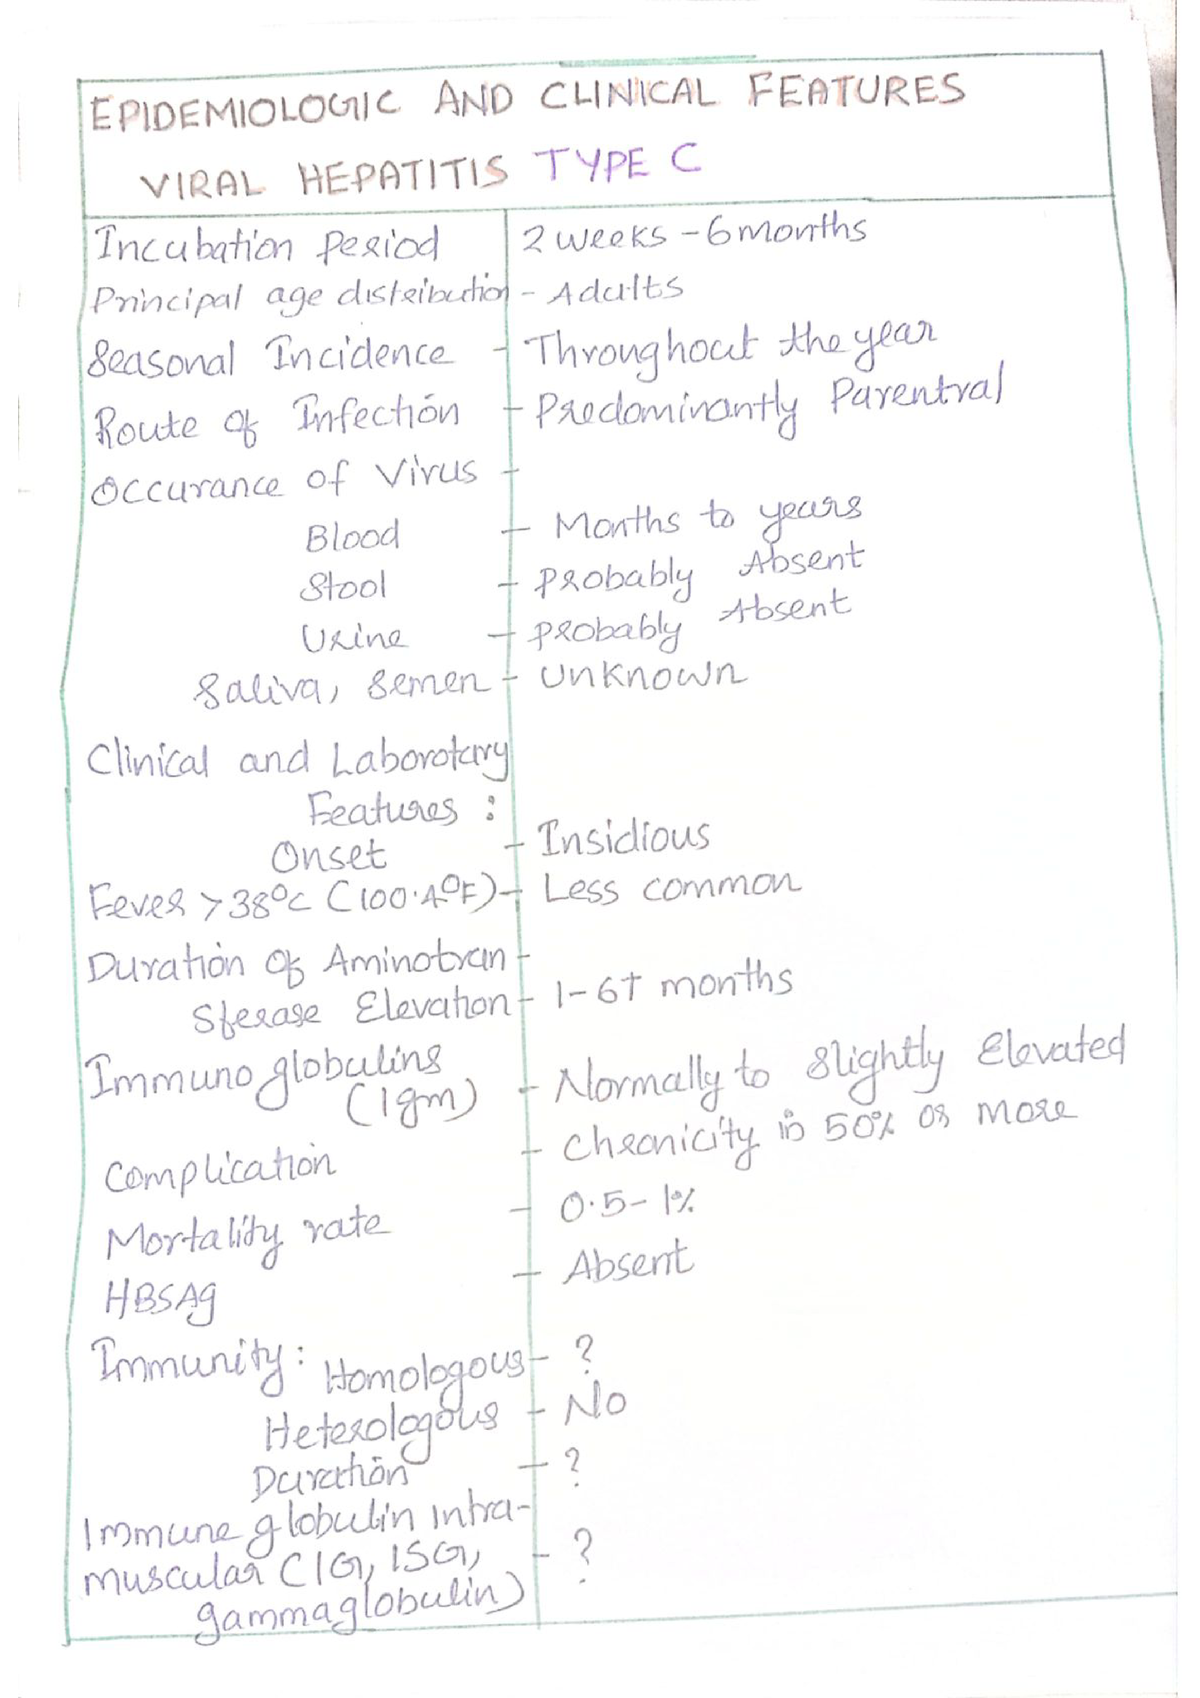 EPIDEMIOLOGIC AND CLINICAL FEATURES
VIRAL HEPATITIS TYPE C
Incubation Period 2 weeks - 6 months
Principal age distribution - Adults
Seasonal Incidence - Throughout the year
Route of Infection - Predominantly Parentral
Occurance of Virus -
Blood - Months to years
Stool - Probably Absent
Urine - Probably Absent
Saliva, Semen - Unknown
Clinical and Laborotary
Features :
Onset - Insidious
Fever > 38°C (100.4°F) - Less common
Duration of Aminotran -
Sferase Elevation - 1-6+ months
Immuno globulins
(Igm) - Normally to Slightly Elevated
Complication - Chronicity in 50% or more
Mortality rate - 0.5-1%
HBSAg - Absent
Immunity: Homologous - ?
Heterologous - No
Duration - ?
Immune globulin intra-
muscular (IG, ISG, - ?
gammaglobulin)